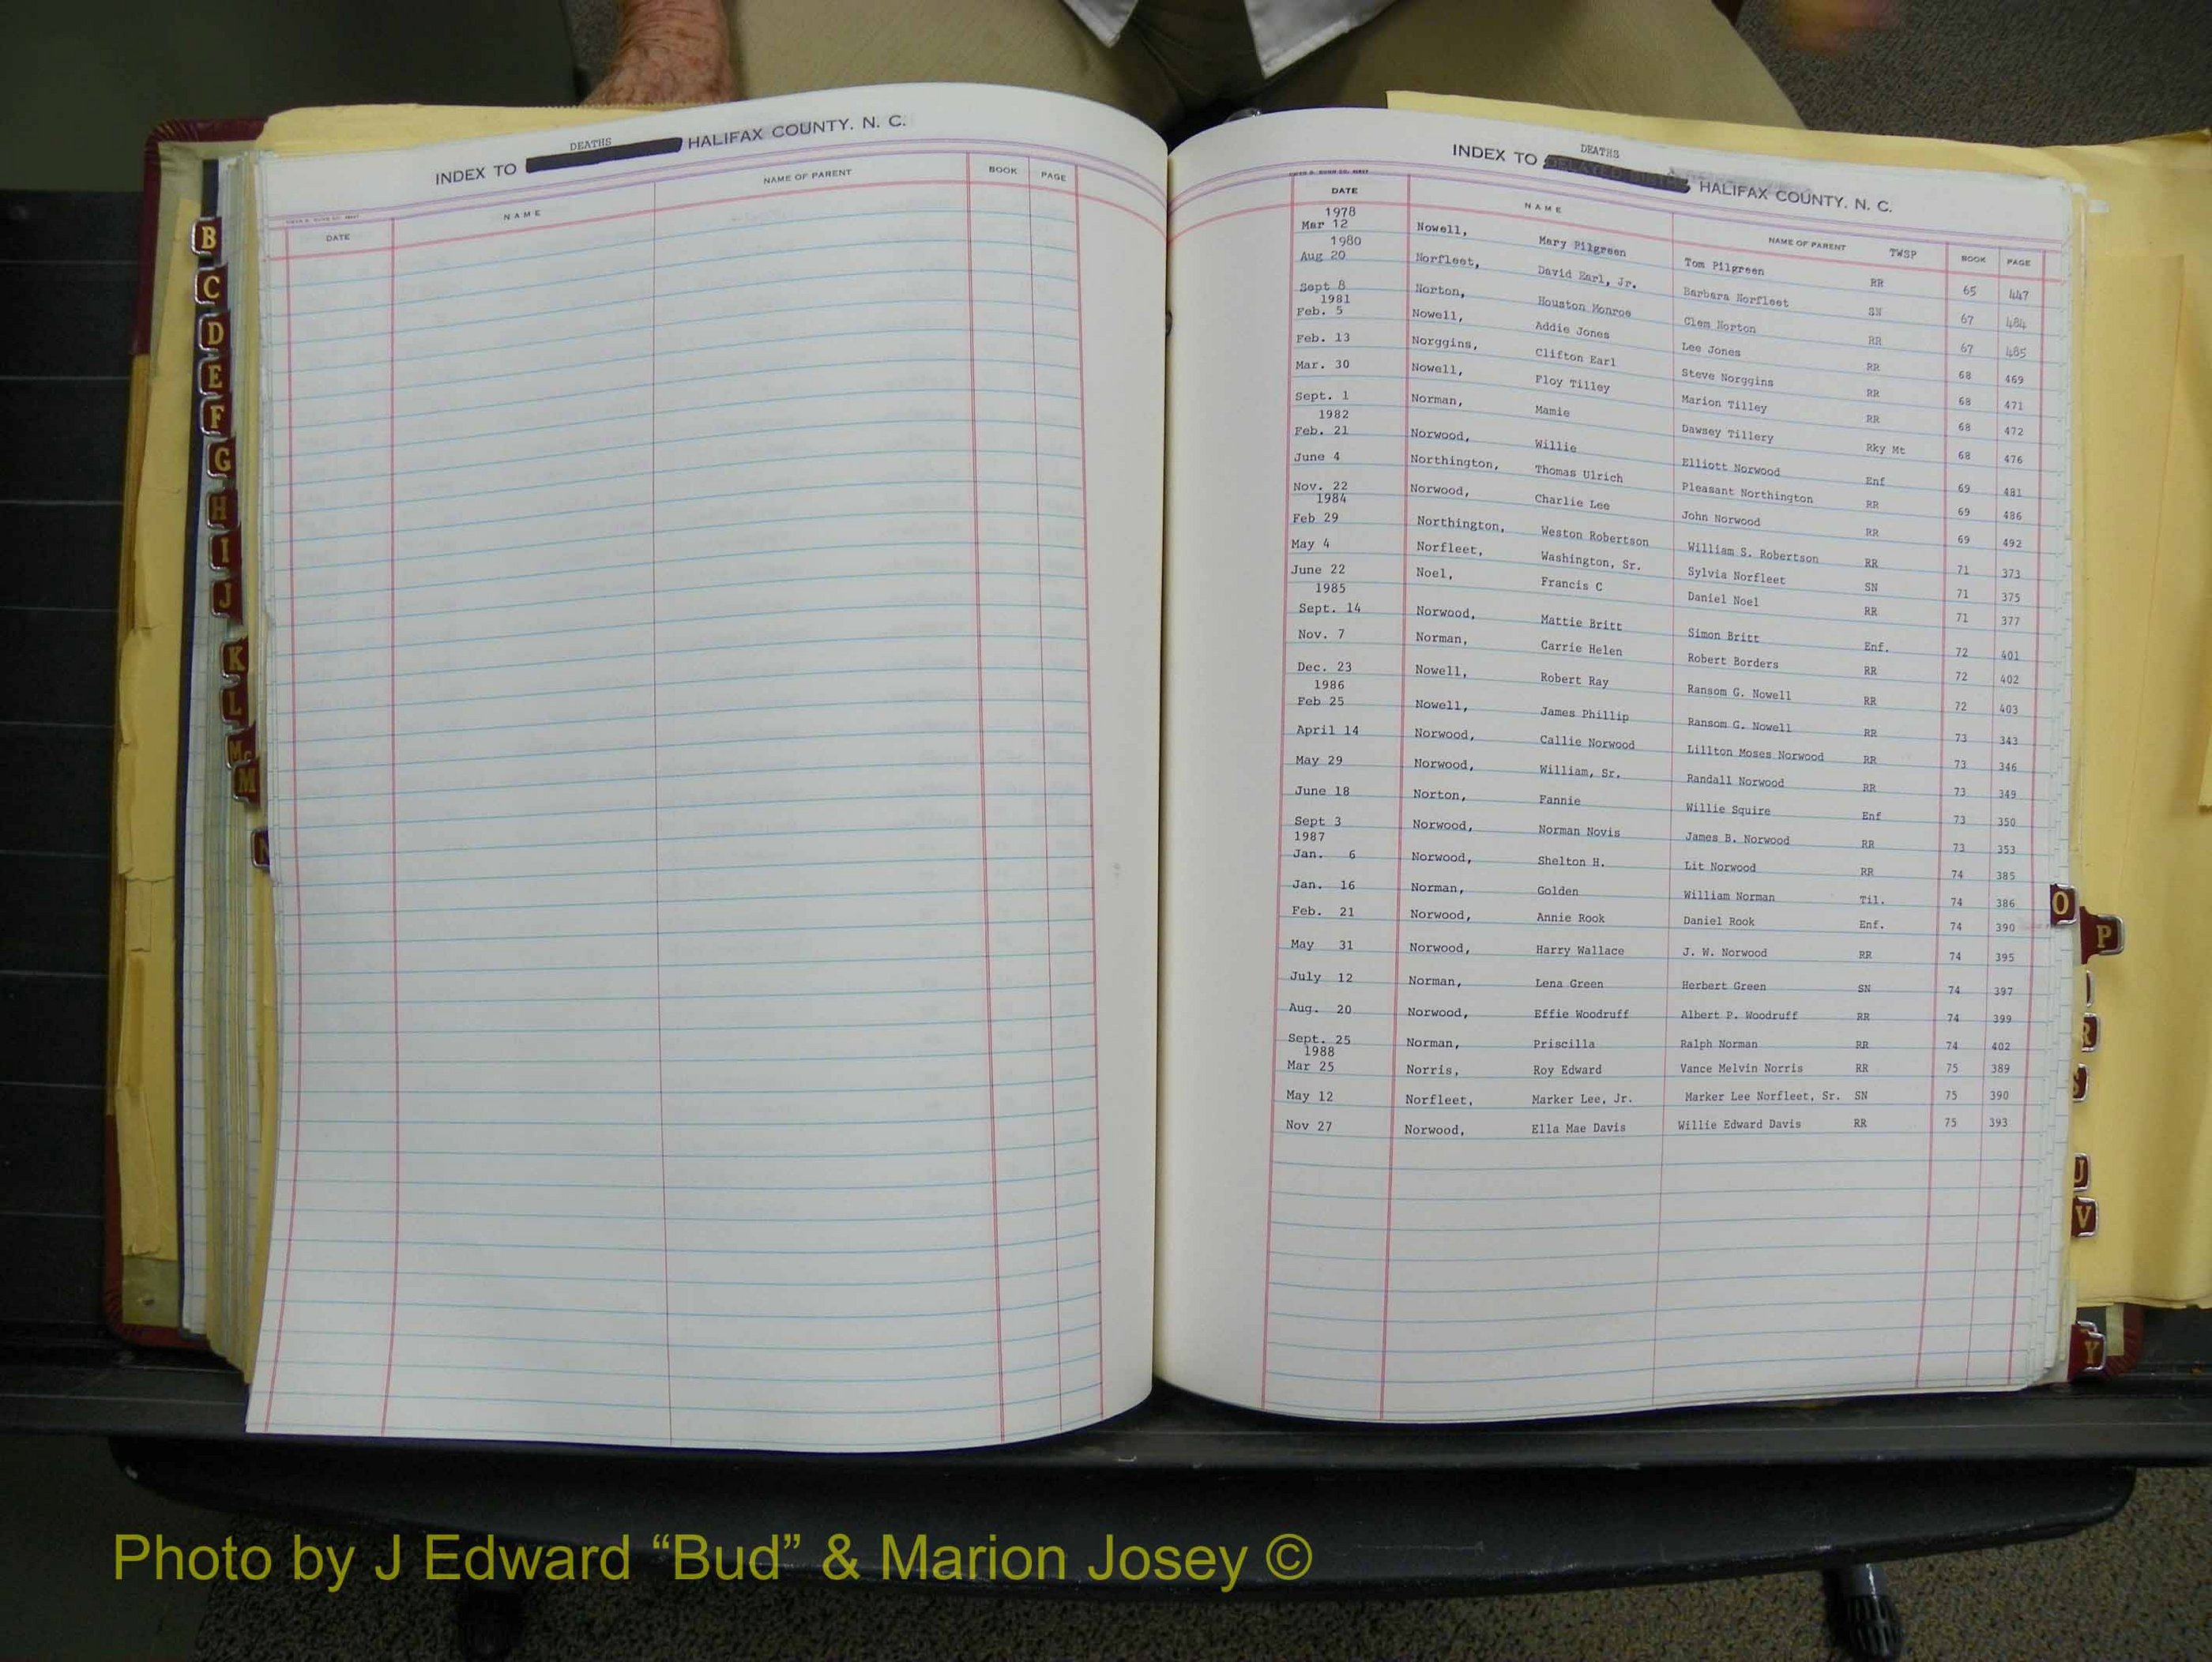 DEATHS
INDEX TO HALIFAX COUNTY. N. C.
DATE NAME NAME OF PARENT BOOK PAGE
DEATHS
INDEX TO HALIFAX COUNTY. N. C.
DATE NAME NAME OF PARENT TWSP BOOK PAGE
1978
Mar 12 Nowell, Mary Pilgreen Tom Pilgreen RR 65 447
1980
Aug 20 Norfleet, David Earl, Jr. Barbara Norfleet SN 67 484
Sept 8 Norton, Houston Monroe Clem Norton RR 67 485
1981
Feb. 5 Nowell, Addie Jones Lee Jones RR 68 469
Feb. 13 Norggins, Clifton Earl Steve Norggins RR 68 471
Mar. 30 Nowell, Floy Tilley Marion Tilley RR 68 472
Sept. 1 Norman, Mamie Dawsey Tillery Rky Mt 68 476
1982
Feb. 21 Norwood, Willie Elliott Norwood Enf 69 481
June 4 Northington, Thomas Ulrich Pleasant Northington RR 69 486
Nov. 22 Norwood, Charlie Lee John Norwood RR 69 492
1984
Feb 29 Northington, Weston Robertson William S. Robertson RR 71 373
May 4 Norfleet, Washington, Sr. Sylvia Norfleet SN 71 375
June 22 Noel, Francis C Daniel Noel RR 71 377
1985
Sept. 14 Norwood, Mattie Britt Simon Britt Enf. 72 401
Nov. 7 Norman, Carrie Helen Robert Borders RR 72 402
Dec. 23 Nowell, Robert Ray Ransom G. Nowell RR 72 403
1986
Feb 25 Nowell, James Phillip Ransom G. Nowell RR 73 343
April 14 Norwood, Callie Norwood Lillton Moses Norwood RR 73 346
May 29 Norwood, William, Sr. Randall Norwood RR 73 349
June 18 Norton, Fannie Willie Squire Enf 73 350
Sept 3 Norwood, Norman Novis James B. Norwood RR 73 353
1987
Jan. 6 Norwood, Shelton H. Lit Norwood RR 74 385
Jan. 16 Norman, Golden William Norman Til. 74 386
Feb. 21 Norwood, Annie Rook Daniel Rook Enf. 74 390
May 31 Norwood, Harry Wallace J. W. Norwood RR 74 395
July 12 Norman, Lena Green Herbert Green SN 74 397
Aug. 20 Norwood, Effie Woodruff Albert P. Woodruff RR 74 399
Sept. 25 Norman, Priscilla Ralph Norman RR 74 402
1988
Mar 25 Norris, Roy Edward Vance Melvin Norris RR 75 389
May 12 Norfleet, Marker Lee, Jr. Marker Lee Norfleet, Sr. SN 75 390
Nov 27 Norwood, Ella Mae Davis Willie Edward Davis RR 75 393
B
C
D
E
F
G
H
I
J
K
L
Mc
M
N
O
P
R
S
U
V
Y
Photo by J Edward “Bud” & Marion Josey ©